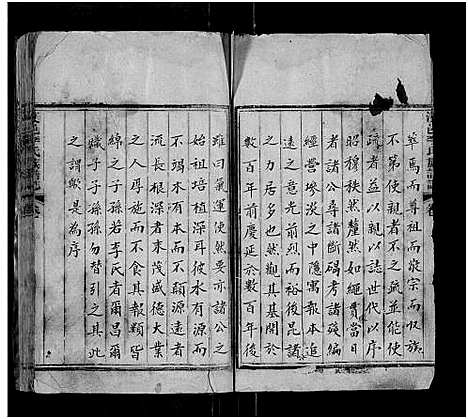 萃焉而尊祖而敬宗而收族
不第使親者不之疏並能使
疏者益以親以誌世代以序
昭穆秩然釐然如繩貫當日
者諸公尋諸斷碣考諸殘編
經營慘淡之中隱寓報本追
遠之意光前烈而裕後昆諸
力居多也然觀其基開於
數百年前慶延於數百年後
雖曰氣運使然要亦諸公之
始祖培植深耳彼水有源而
不竭木有本而不顛源遠者
流長根深者末茂盛德大業
之人厚施而不食其報類皆
綿之子若李氏者爾昌爾
熾子子孫孫勿替引之其此
之謂歟是為序